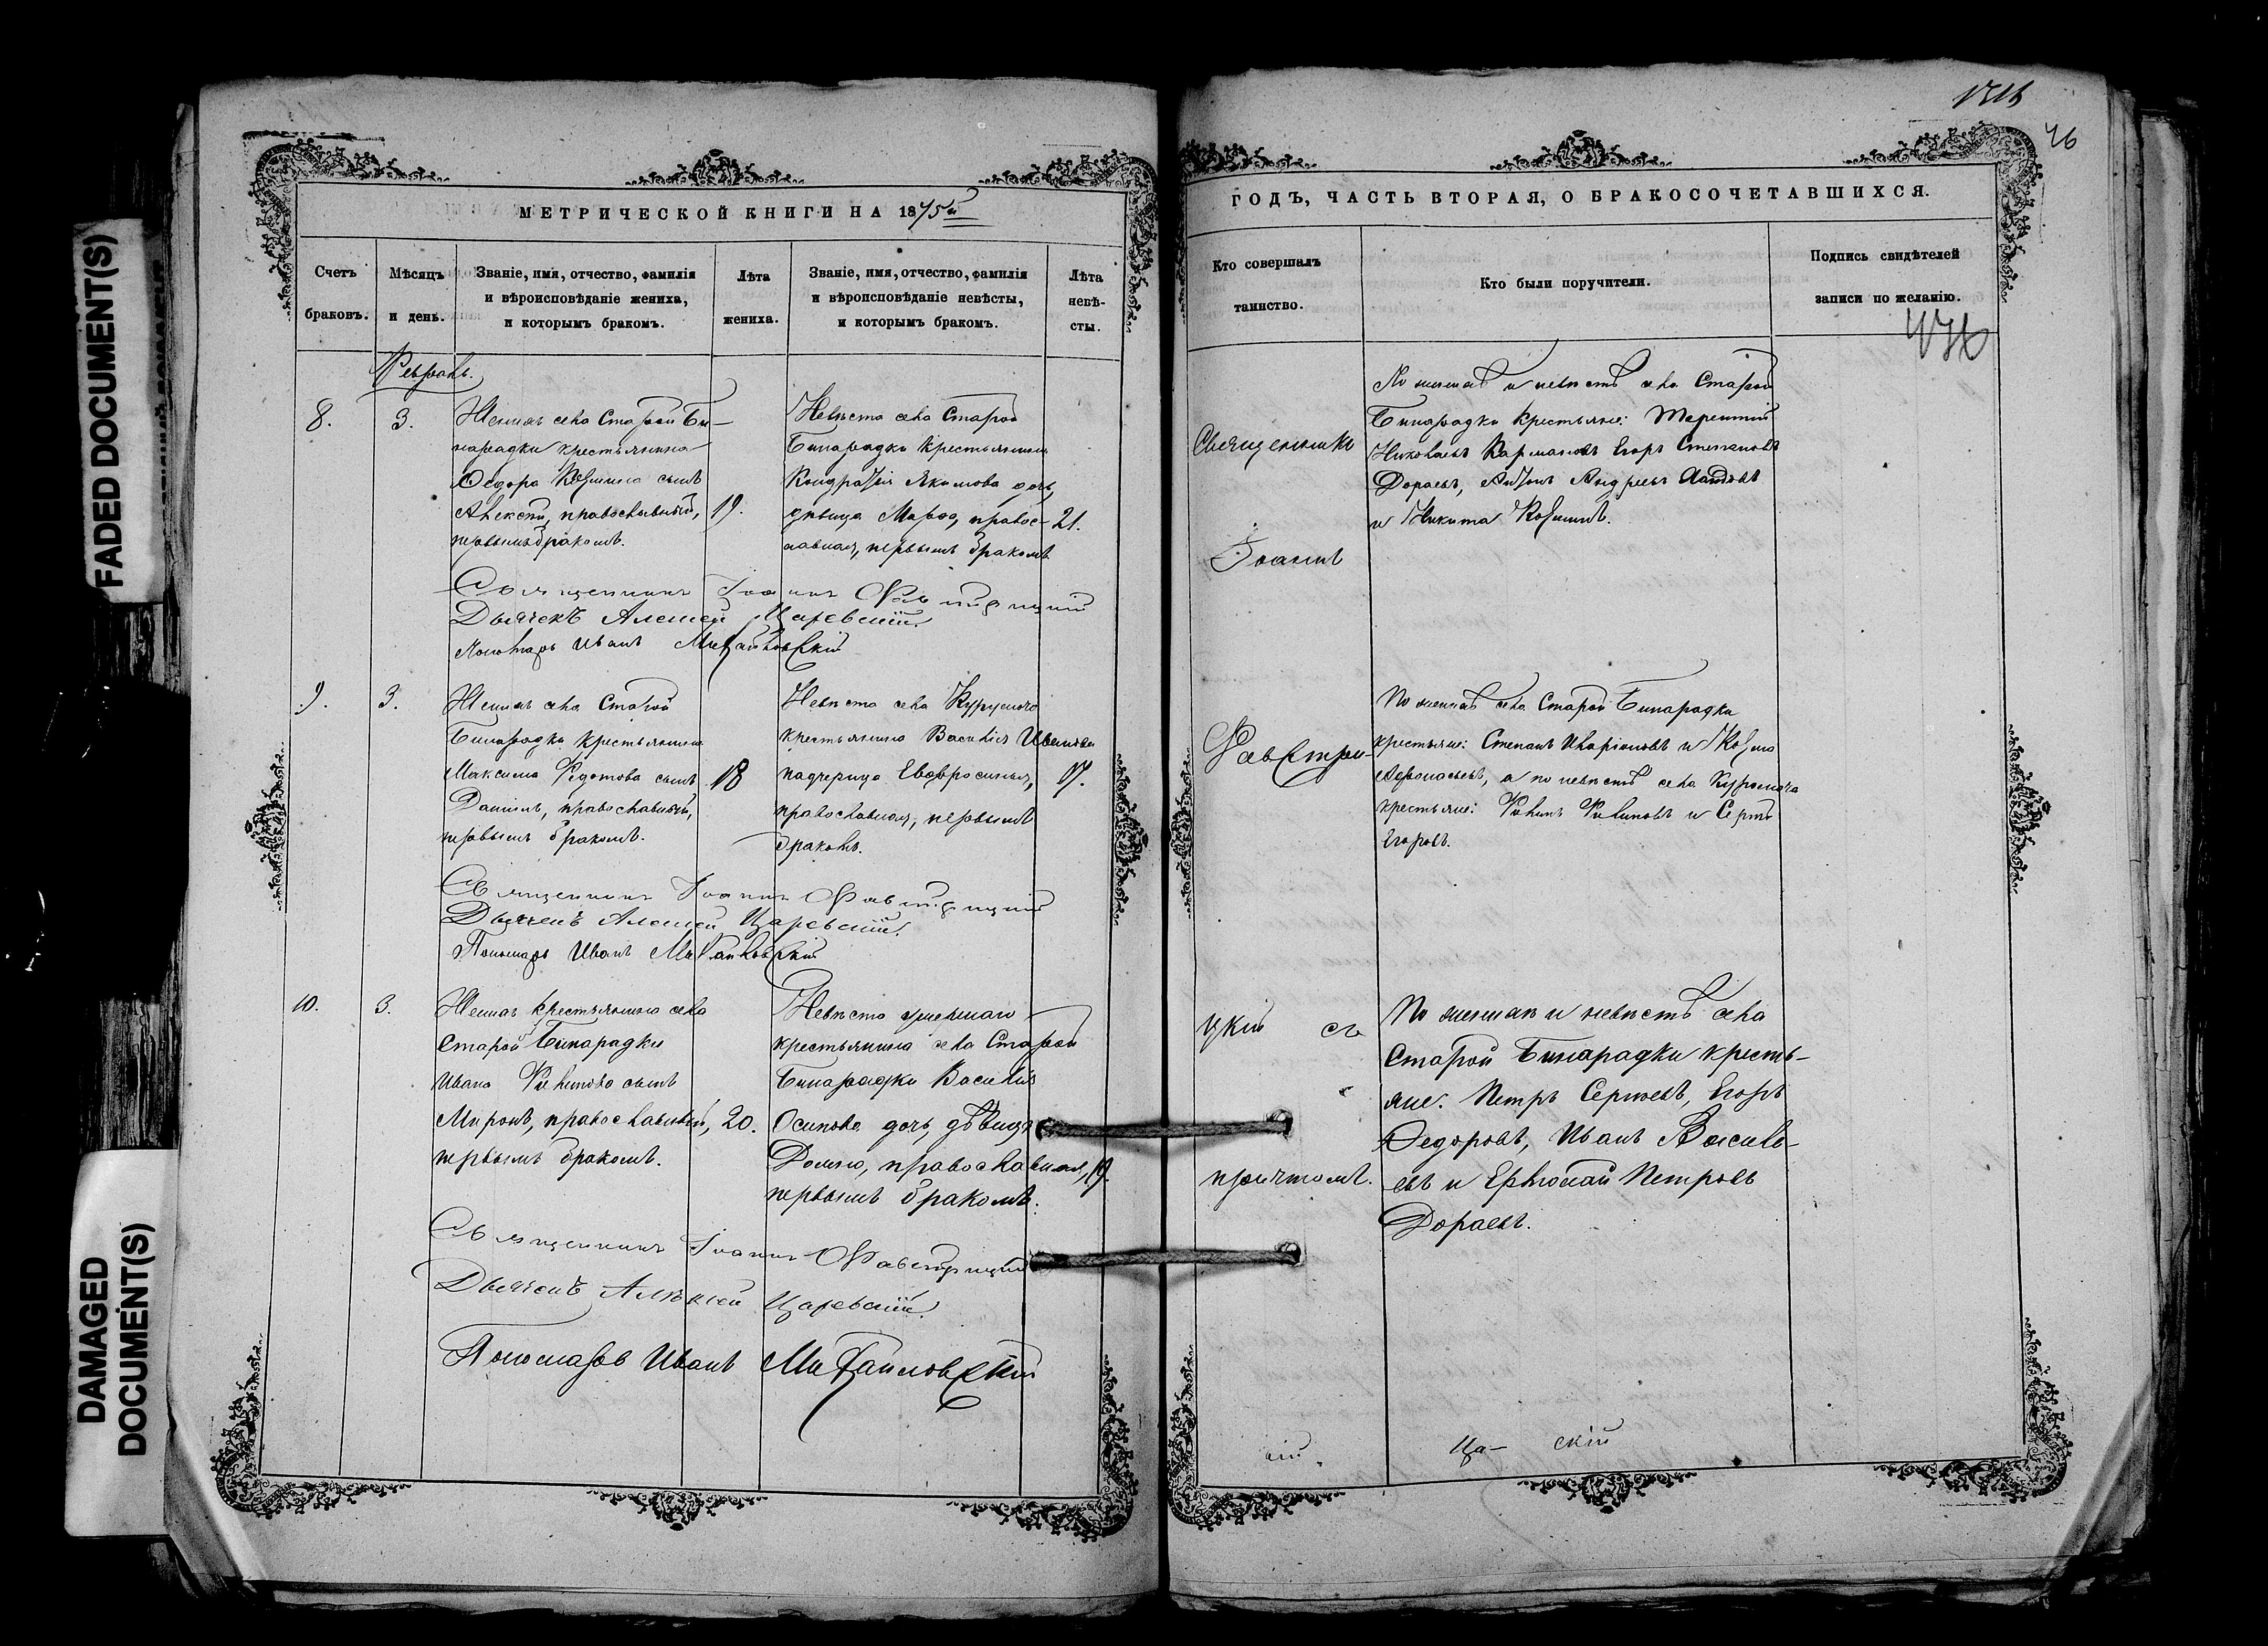 FADED DOCUMENT(S)
DAMAGED
DOCUMENT(S)
46
МЕТРИЧЕСКОЙ КНИГИ НА 1875й
Счетъ
браковъ.
Мѣсяцъ
и день.
Званіе, имя, отчество, фамилія
и вѣроисповѣданіе жениха,
и которымъ бракомъ.
Лѣта
жениха.
Званіе, имя, отчество, фамилія
и вѣроисповѣданіе невѣсты,
и которымъ бракомъ.
Лѣта
невѣ-
сты.
Февраль.
8.
3.
Женихъ села Старой Би-
нарадки крестьянина
Ѳедора Козмина сынъ
Алексѣй, православный,
первымъ бракомъ.
19.
Невѣста села Старой
Бинарадки крестьянина
Кондратія Якимова дочь,
дѣвица Марѳа, правос-
лавная, первымъ бракомъ
21.
Священникъ Іоаннъ Фавстрицкій
Дьячекъ Алексей Царевскій.
Пономарь Иванъ Михайловскій
9.
3.
Женихъ села Старой
Бинарадки крестьянина
Максима Федотова сынъ
Даніилъ, православный,
первымъ бракомъ.
18
Невѣста села Курумоча
крестьянина Василія Иванова
падчерица Евфросинья,
православная, первымъ
бракомъ.
17.
Священникъ Іоаннъ Фавстрицкій
Дьячекъ Алексей Царевскій.
Пономарь Иванъ Михайловскій
10.
3.
Женихъ крестьянина села
Старой Бинарадки
Ивана Филипова сынъ
Миронъ, православный,
первымъ бракомъ.
20.
Невѣста умершаго
крестьянина села Старой
Бинарадки Василія
Осипова дочь, дѣвица
Домна, православная,
первымъ бракомъ.
19.
Священникъ Іоаннъ Фавстрицкій
Дьячекъ Алексей Царевскій.
Пономарь Иванъ Михайловскій
ГОДЪ, ЧАСТЬ ВТОРАЯ, О БРАКОСОЧЕТАВШИХСЯ.
Кто совершалъ
таинство.
Кто были поручители.
Подпись свидѣтелей
записи по желанію.
Священникъ
Іоаннъ
Фавстри-
цкій съ
причтомъ.
По женихѣ и невѣстѣ села Старой
Бинарадки крестьяне: Терентій
Николаевъ Кармановъ, Егоръ Степановъ
Дораевъ, Антонъ Андреевъ
и Никита Козминъ.
По женихѣ села Старой Бинарадки
крестьяне: Степанъ Иларіоновъ и Козма
Афонасьевъ, а по невѣстѣ села Курумоча
крестьяне: Филипъ Филиповъ и Сергѣй
Егоровъ.
По женихѣ и невѣстѣ села
Старой Бинарадки кресть-
яне: Петръ Сергѣевъ, Егоръ
Ѳедоровъ, Иванъ Василь-
евъ и Ермолай Петровъ
Дораевъ.
Ца- скій